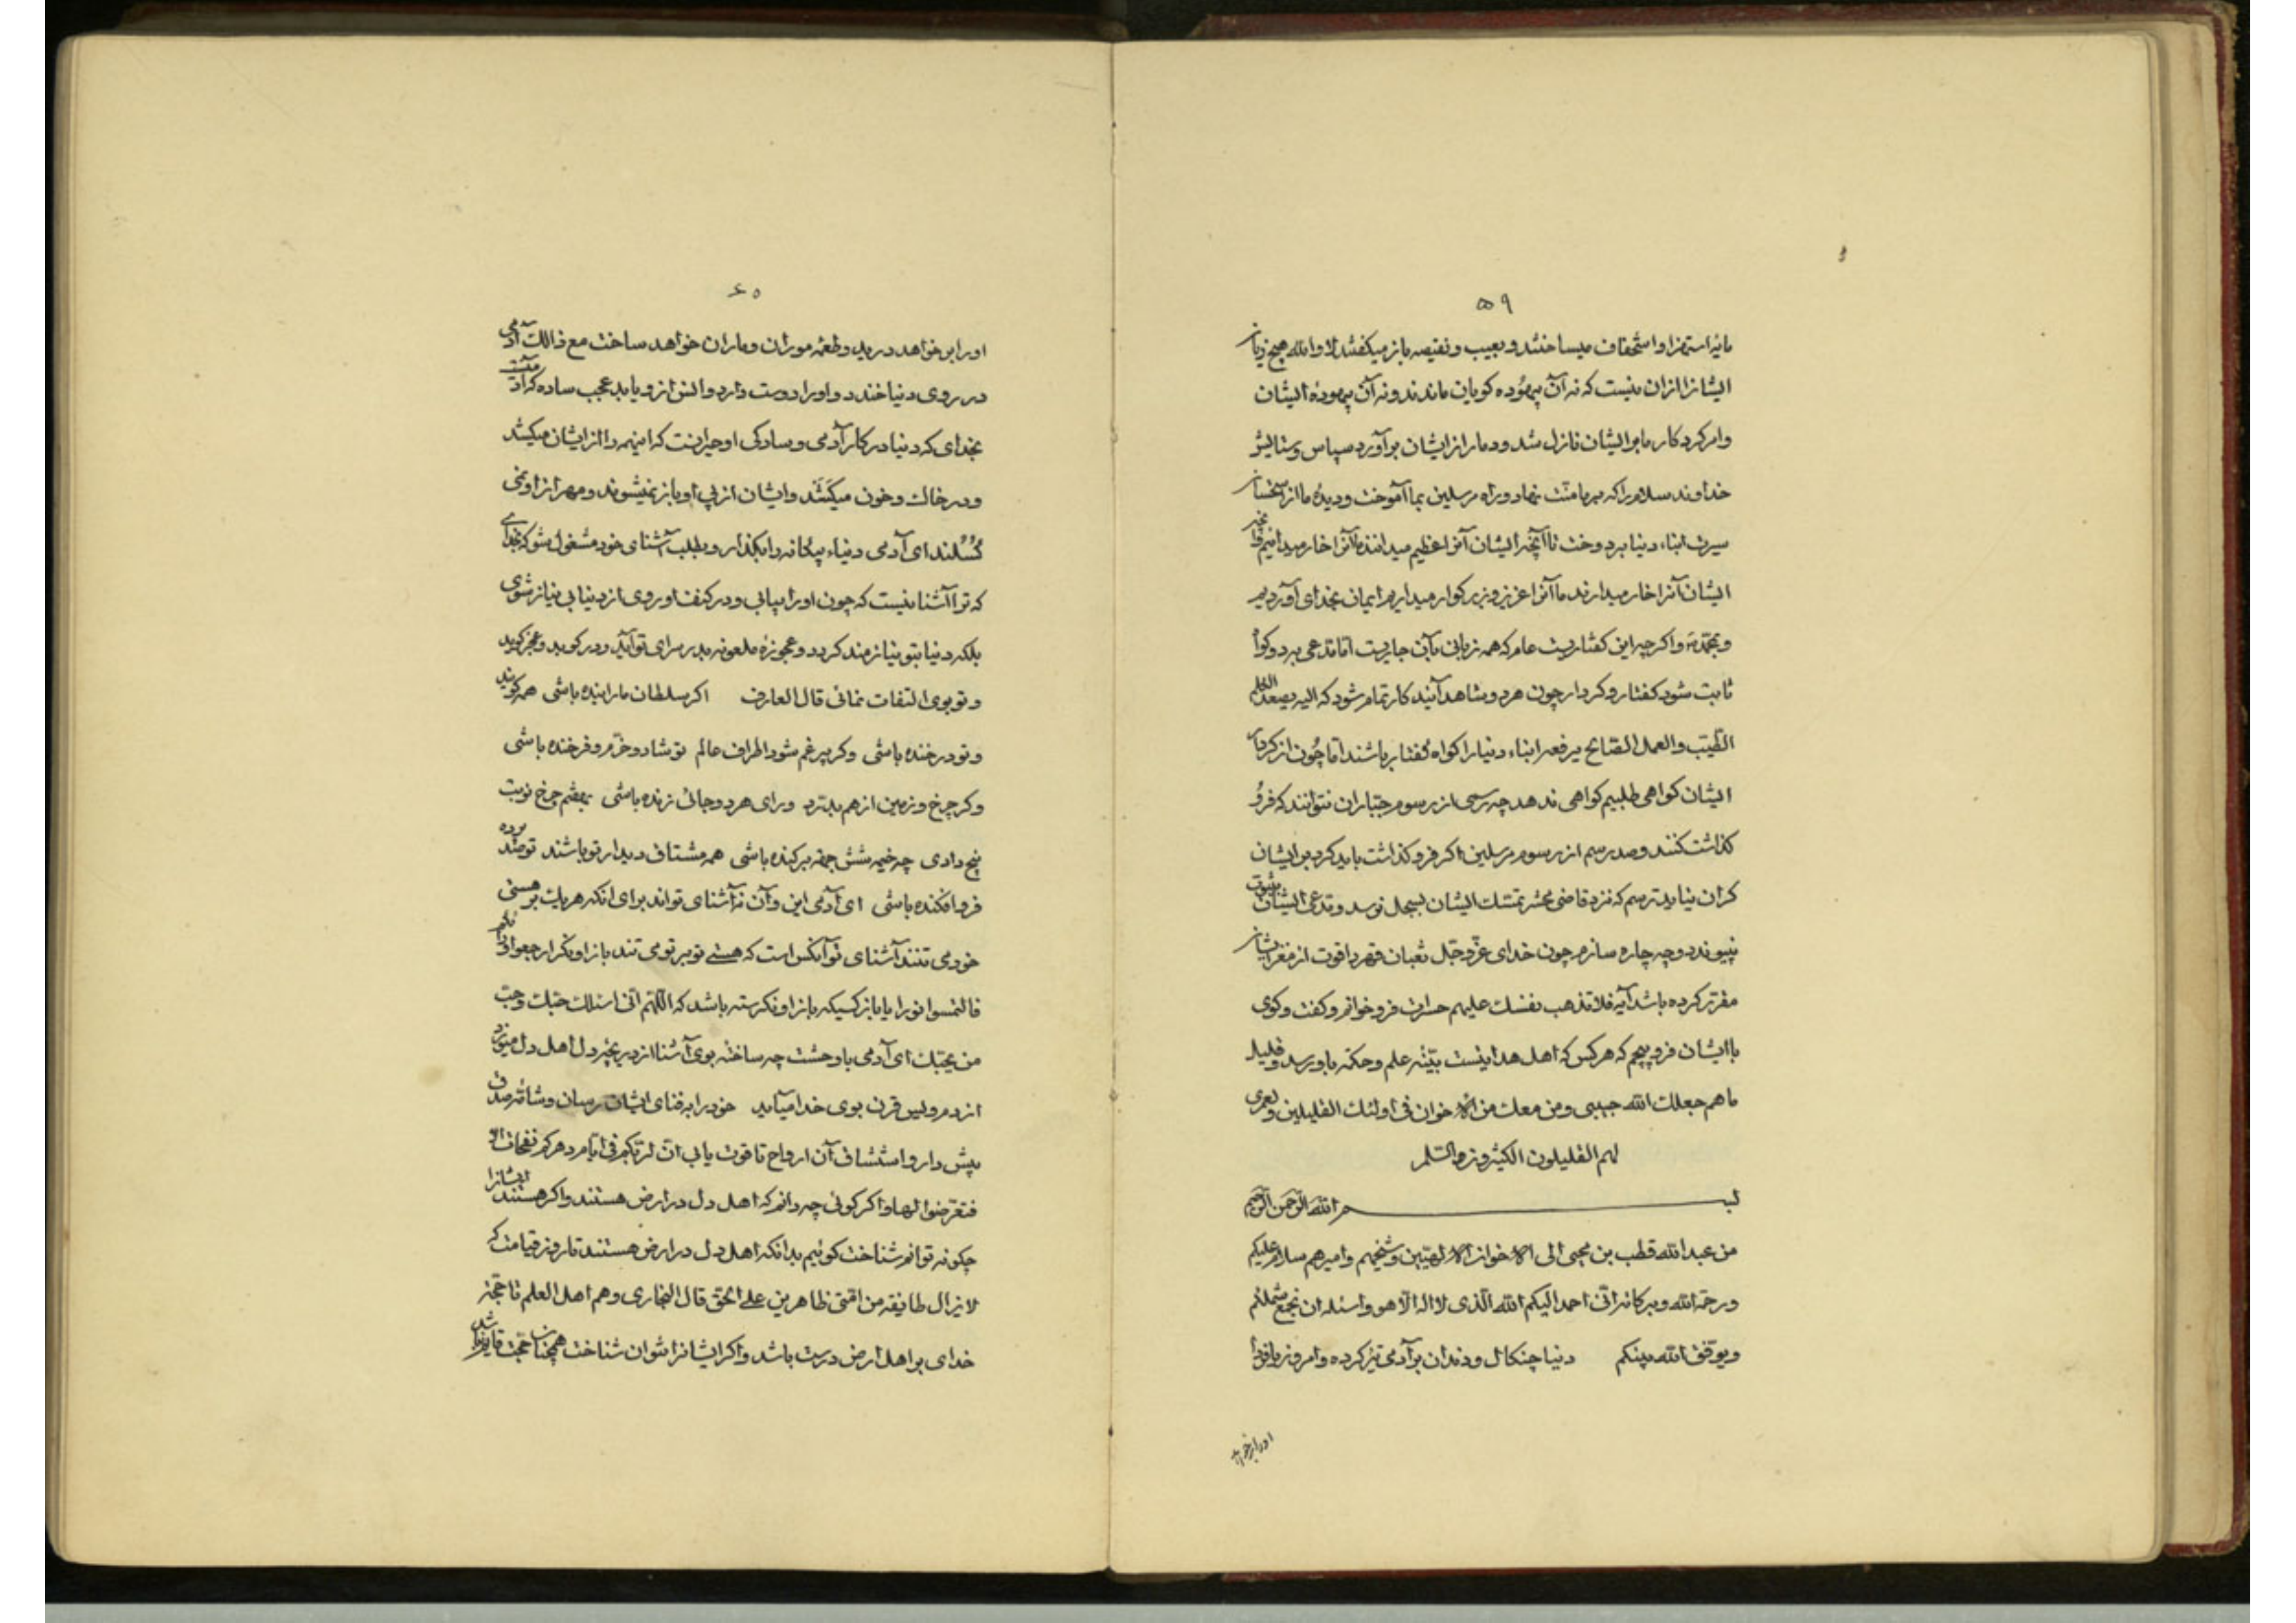 ۵۹
مایهٔ استهزا و استخفاف میساختند و بعیب و نقیصه باز میگفتند لا والله هیچ زیان
ایشانرا ازان نیست که نه آن بیهوده گویان ماندند و نه آن بیهودهٔ ایشان
وامر کردکار ما بر ایشان نازل شد و دمار از ایشان برآورد سپاس و ستایش
خداوند سلام را که بر ما منّت نهاد و راه مرسلین بما آموخت و دیدهٔ ما از
سیرت ابناء دنیا بردوخت تا آنچه ایشان آنرا عظیم میدانند ما آنرا خار میدانیم
ایشان آنرا خار میدارند ما آنرا عزیز و بزرکوار میداریم ایمان بخدای آوردیم
و بمحمّد و اکرچه این کفتاریست عام که همه زبانی بآن جاریست امّا مدّعی بدو کواه
ثابت شود کفتار و کردار چون هر دو شاهد آیند کار تمام شود که الیه یصعد الکلم
الطّیّب والعمل الصّالح یرفعه ابناء دنیا را کواه کفتار باشند امّا چون از کردار
ایشان کواهی طلبیم کواهی ندهد چه رسمی از رسوم جبّاران نتوانند که فرو
کذاشت کنند و صد رسم از رسوم مرسلین اکر فرو کذاشت باید کرد بر ایشان
کران نیاید ترسم که نزد قاضی محشر تمسّک ایشان بسجل نرسد و مدّعی ایشان بثبوت
نپیوندد و چه چاره سازم چون خدای عزّ و جلّ ثعبان قهر را قوت از مغز ایشان
مقرّر کرده باشد آیه فلا تذهب نفسک علیهم حسرات فرو خوانم و کفت و کوی
با ایشان فرو پیچم که هر کس که اهل هدا نیست بتیشه علم و حکمة باو رسد و قلیل
ما هم جعلک الله حبیبی و من معک من الاخوان فی اولئک القلیلین و لعمری
لهم القلیلون الکثیرون والسّلم
بسم الله الرّحمن الرّحیم
من عبد الله قطب بن محیی الی الاخوان الالهیّین و شیخهم و امیرهم سلام علیکم
و رحمة الله و برکاته انّی احمد الیکم الله الّذی لا اله الّا هو و اسئله ان یجمع شملکم
و یوفّق الله بینکم دنیا چنکال و دندان بر آدمی تیز کرده و امروز یا فردا
اورا بر خواهد
۶۰
اورا بر خواهد درید و طعمه موران و ماران خواهد ساخت مع ذالک آدمی
در روی دنیا خندد و اورا دوست دارد و انس از و یابد عجب ساده که آدمیست
بخدای که دنیا در کار آدمی و سادکی او حیرانست که اینهمه را از ایشان میکشد
و در خاک و خون میکشد و ایشان از پی او باز نمیشوند و مهر از او نمی
کسلند ای آدمی دنیاء بیکانه را بکذار و بطلب آشنای خود مشغول شو که بخدای
که ترا آشنا نیست که چون اورا بیابی و در کنف او روی از دنیا بی نیاز شوی
بلکه دنیا بتو نیازمند کردد و عجوزهٔ ملعونه بدر سرای تو آید و در کوبد و عجز کوید
و تو بوی التفات نمائی قال العارف اکر سلطان مارا بنده باشی همه کویند
و تو در خنده باشی وکر پر غم شود اطراف عالم تو شاد و خرّم و فرخنده باشی
وکر چرخ و زمین از هم بدرّد ورای هر دو جائی زنده باشی بهفتم چرخ نوبت
پنج داری چه خیمه شش جهه برکنده باشی همه مشتاق دیدار تو باشند تو صد پرده
فروافکنده باشی ای آدمی این و آن نه آشنای تواند برای آنکه هر یک بر هستی
خود می تنند آشنای تو آنکس است که هستی تو بر تو می تند باز او نکر ارجعوا وراءکم
فالتمسوا نورا یا باز کسیکه باز او نکرسته باشد که اللّهم انّی اسئلک حبّک و حبّ
من یحبّک ای آدمی با وحشت چه ساختهٔ بوی آشنا از دریچهٔ دل اهل دل میوزد
از دم ویس قرن بوی خدا میآید خود را بفنای ایشان رسان و شامّه صدق
پیش دار و استنشاق آن ارواح تا قوت یابی انّ لربّکم فی ایّام دهرکم نفحات الا
فتعرّضوا لها و اکر کوئی چه دانم که اهل دل در ارض هستند و اکر هستند ایشانرا
چکونه توانم شناخت کوئیم بدانکه اهل دل در ارض هستند تا روز قیامت که
لایزال طایفه من امّتی ظاهرین علی الحقّ قال البخاری و هم اهل العلم تا حجّة
خدای بر اهل ارض درست باشد و اکر ایشانرا نتوان شناخت همچنان حجّت قایم نباشد